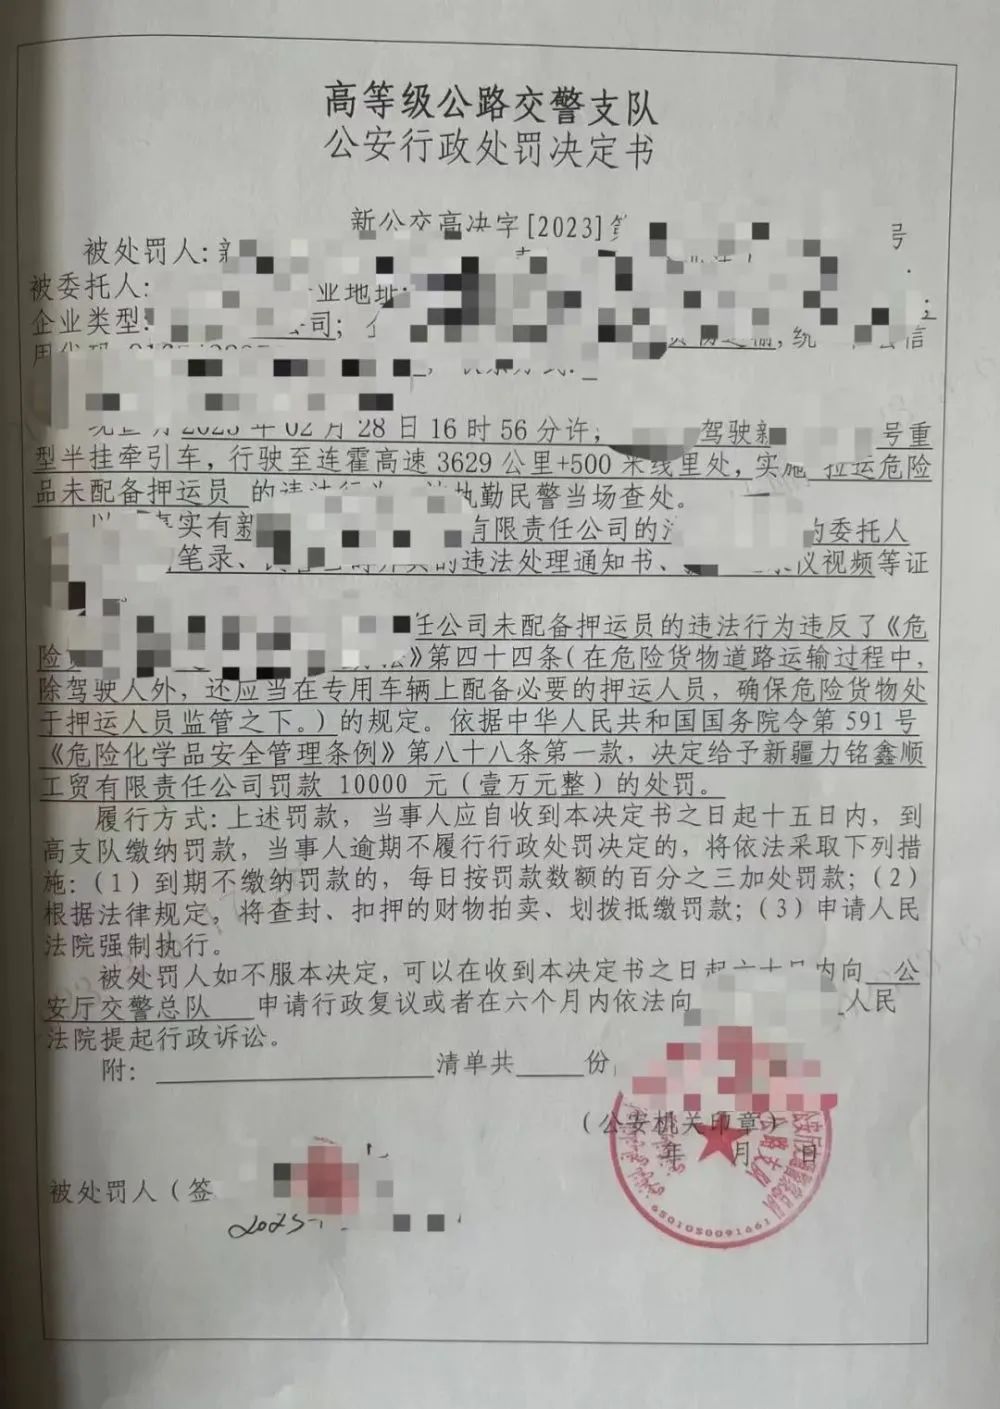 高等级公路交警支队
公安行政处罚决定书
新公交高决字[2023]第 号
被处罚人:
被委托人: 业地址:
企业类型: 公司; 统 信
用代码
2023 年 02 月 28 日 16 时 56 分许, 驾驶新 号重
型半挂牵引车,行驶至连霍高速 3629 公里+500 米线里处,实施 拉运危险
品未配备押运员 的违法行为, 执勤民警当场查处。
以 事实有新 有限责任公司的 的委托人
笔录、 的违法处理通知书、 仪视频等证
任公司未配备押运员的违法行为违反了《危
险 》第四十四条(在危险货物道路运输过程中,
除驾驶人外,还应当在专用车辆上配备必要的押运人员,确保危险货物处
于押运人员监管之下。)的规定。依据中华人民共和国国务院令第 591 号
《危险化学品安全管理条例》第八十八条第一款,决定给予新疆力铭鑫顺
工贸有限责任公司罚款 10000 元(壹万元整)的处罚。
履行方式:上述罚款,当事人应自收到本决定书之日起十五日内,到
高支队缴纳罚款,当事人逾期不履行行政处罚决定的,将依法采取下列措
施:(1)到期不缴纳罚款的,每日按罚款数额的百分之三加处罚款;(2)
根据法律规定,将查封、扣押的财物拍卖、划拨抵缴罚款;(3)申请人民
法院强制执行。
被处罚人如不服本决定,可以在收到本决定书之日起六十日内向 公
安厅交警总队 申请行政复议或者在六个月内依法向 人民
法院提起行政诉讼。
附: 清单共 份
(公安机关印章)
年 月 日
被处罚人(签
2023
6501050091661